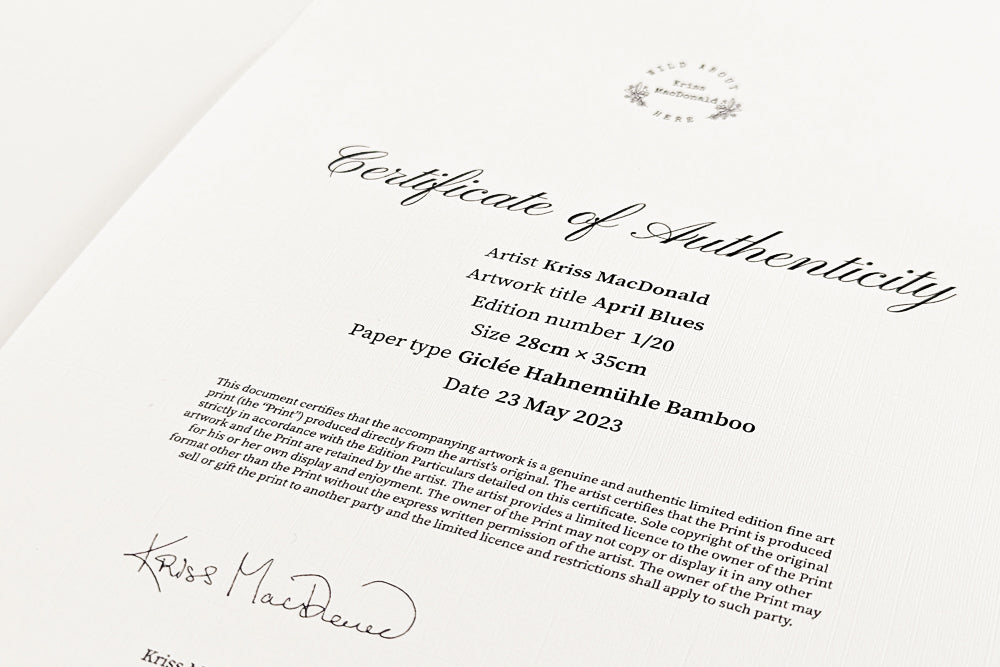 WILD ABOUT
Kriss
MacDonald
HERE
Certificate of Authenticity
Artist Kriss MacDonald
Artwork title April Blues
Edition number 1/20
Size 28cm × 35cm
Paper type Giclée Hahnemühle Bamboo
Date 23 May 2023
This document certifies that the accompanying artwork is a genuine and authentic limited edition fine art
print (the “Print”) produced directly from the artist’s original. The artist certifies that the Print is produced
strictly in accordance with the Edition Particulars detailed on this certificate. Sole copyright of the original
artwork and the Print are retained by the artist. The artist provides a limited licence to the owner of the Print
for his or her own display and enjoyment. The owner of the Print may not copy or display it in any other
format other than the Print without the express written permission of the artist. The owner of the Print may
sell or gift the print to another party and the limited licence and restrictions shall apply to such party.
Kriss MacDonald
Kriss